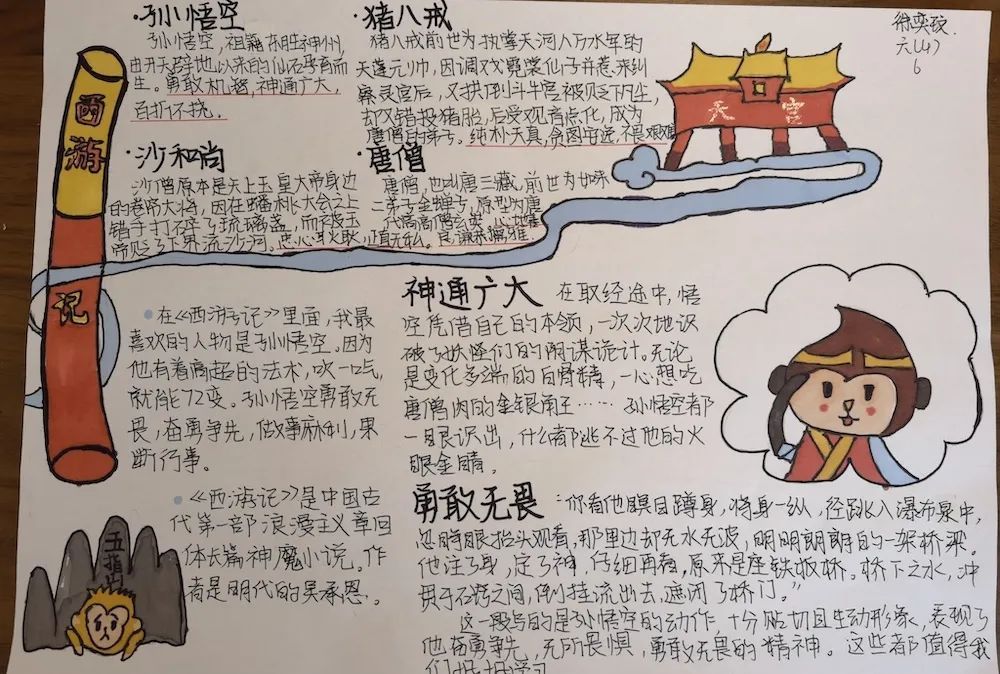 西游记
·孙悟空
孙悟空，祖籍东胜神州，
由开天辟地以来的仙石孕育而
生。勇敢机智，神通广大，
百折不挠。
·猪八戒
猪八戒前世为执掌天河八万水军的
天蓬元帅，因调戏霓裳仙子并惹来纠
察灵官后，又拱倒斗牛宫被贬下凡尘，
却又错投猪胎，后受观音点化，成为
唐僧的弟子。纯朴天真，贪图安逸，不畏艰难
徐奕
六(4)
6
天宫
·沙和尚
沙僧原本是天上玉皇大帝身边
的卷帘大将，因在蟠桃大会之上
错手打碎了琉璃盏，而被玉
帝贬了下界流沙河。忠心耿耿，正直无私。
·唐僧
唐僧，也叫唐三藏，前世为如来
二弟子金蝉子，原型为唐
代高僧玄奘。心地善
良，谦恭儒雅。
在《西游记》里面，我最
喜欢的人物是孙悟空。因为
他有着高超的法术，吹一口气，
就能72变。孙悟空勇敢无
畏，奋勇争先，做事麻利，果
断行事。
《西游记》是中国古
代第一部浪漫主义章回
体长篇神魔小说。作
者是明代的吴承恩。
五指山
神通广大 在取经途中，悟
空凭借自己的本领，一次次地识
破了妖怪们的阴谋诡计。无论
是变化多端的白骨精，一心想吃
唐僧肉的金银角王……孙悟空都
一眼识出，什么都逃不过他的火
眼金睛。
勇敢无畏 “你看他瞑目蹲身，将身一纵，径跳入瀑布泉中，
忽睁眼抬头观看，那里边却无水无波，明明朗朗的一架桥梁。
他注了身，定了神，仔细再看，原来是座铁板桥。桥下之水，冲
贯于石窍之间，倒挂流出去，遮闭了桥门。”
这一段写的是孙悟空的动作，十分贴切且生动形象，表现了
他奋勇争先，无所畏惧，勇敢无畏的精神。这些都值得我
们好好学习